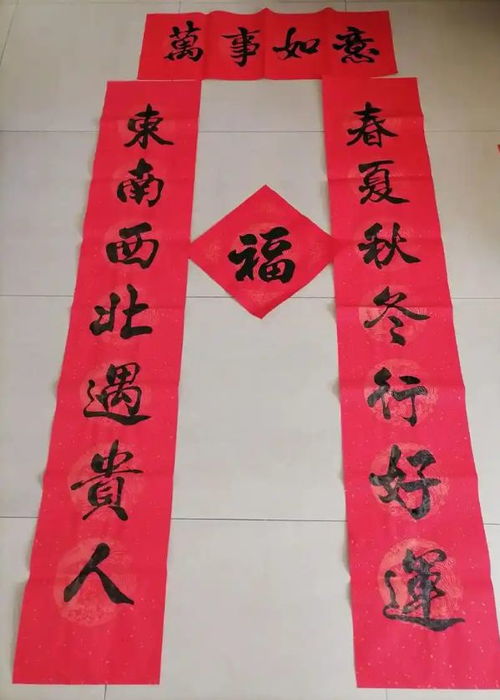 萬事如意
春夏秋冬行好運
東南西北遇貴人
福